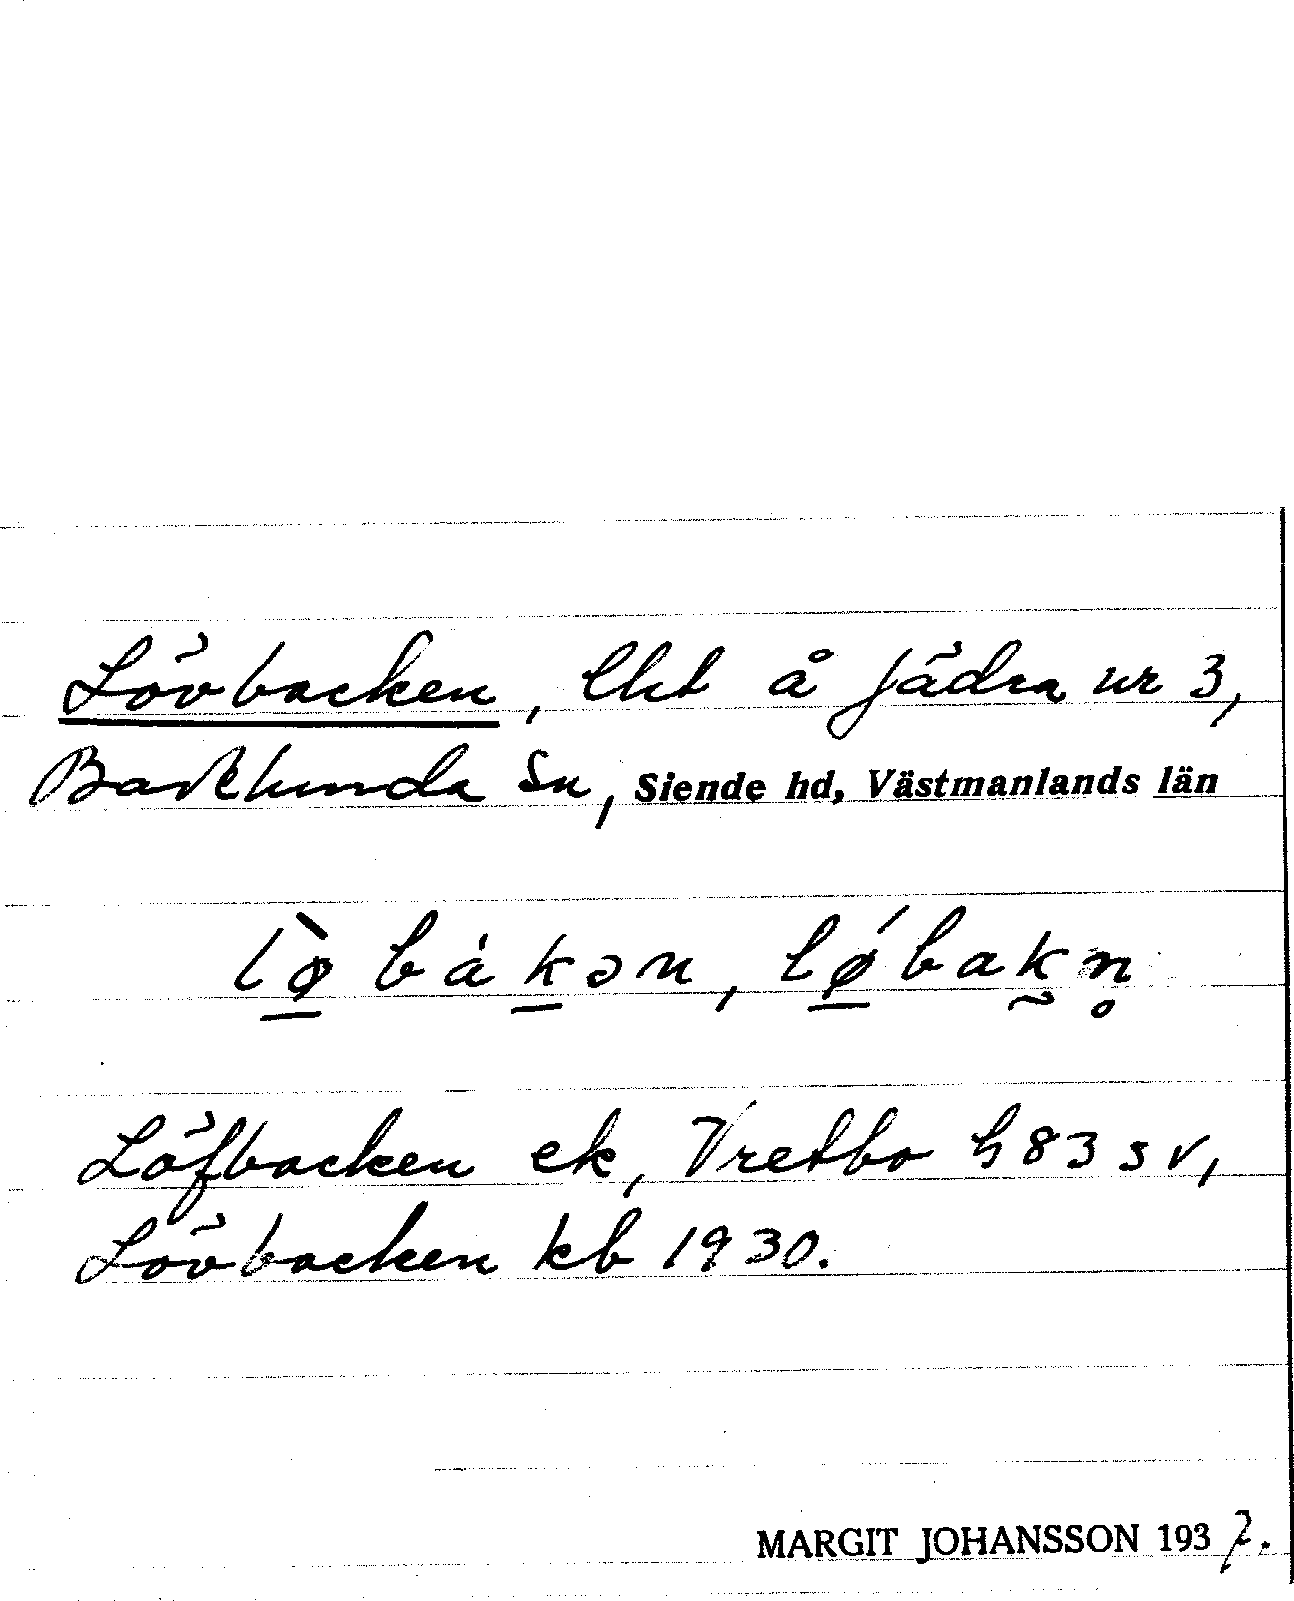 Lövbacken, lht å Jädra nr 3,
Badelunda sn, Siende hd, Västmanlands län
lø̀bȧkən, lǿbakn̥
Löfbacken ek, Vretbo h 83 sv,
Lövbacken kb 1930.
MARGIT JOHANSSON 1937.